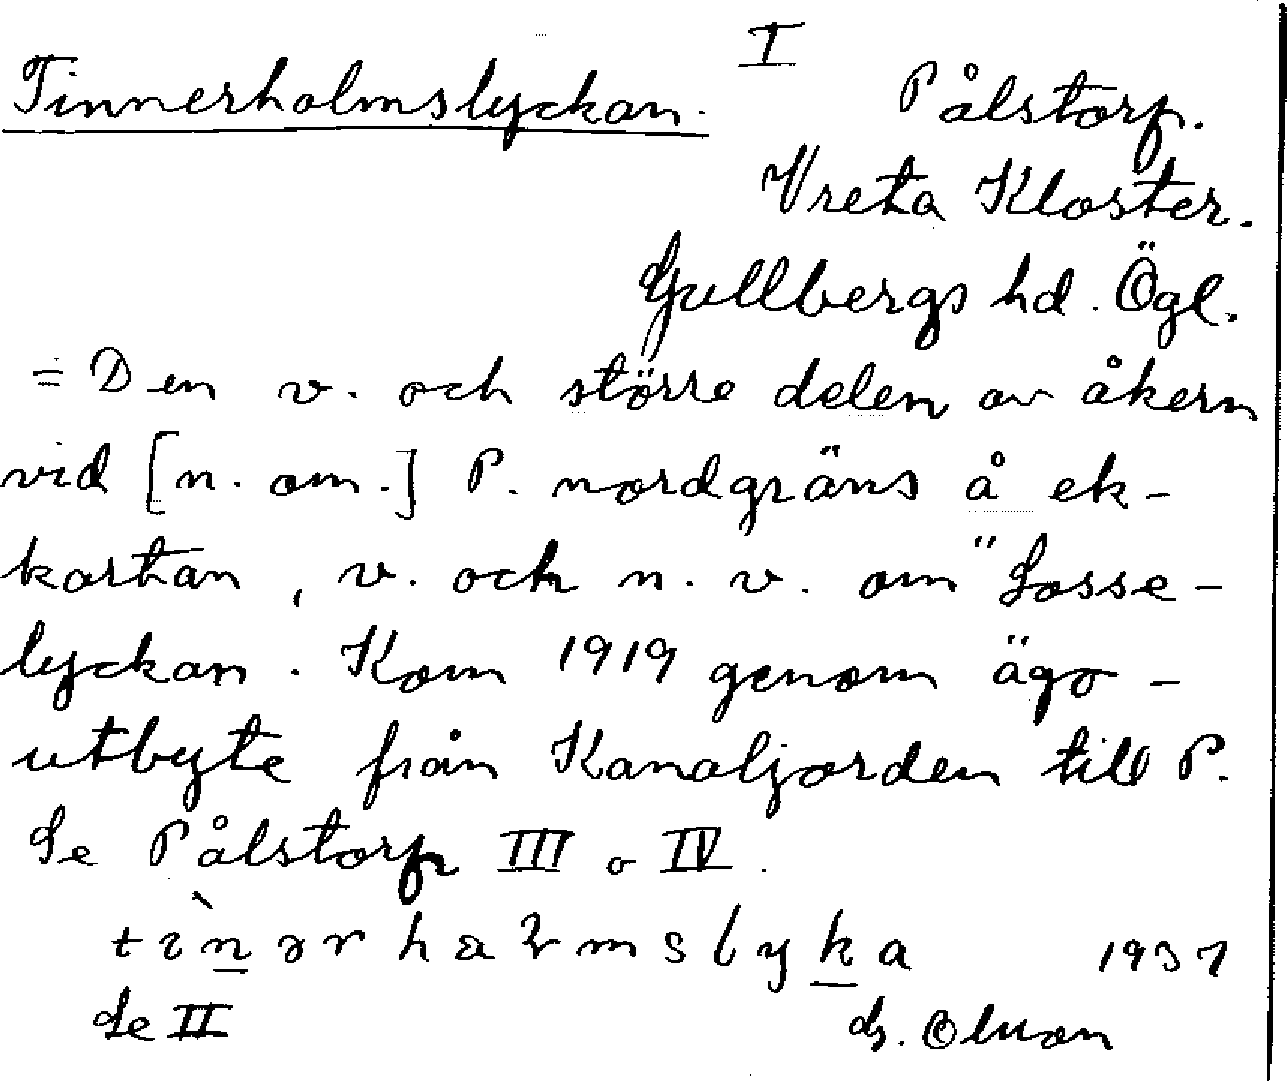 I
Tinnerholmslyckan. Pålstorp.
Vreta Kloster.
Gullbergs hd. Ögl.
= Den v. och större delen av åkern
vid [n. om.] P. nordgräns å ek-
kartan, v. och n. v. om "Sosse-
lyckan. Kom 1919 genom ägo-
utbyte från Kanaljorden till P.
Se Pålstorp III o IV.
tìnərhaɫmslyka 1937
Se II